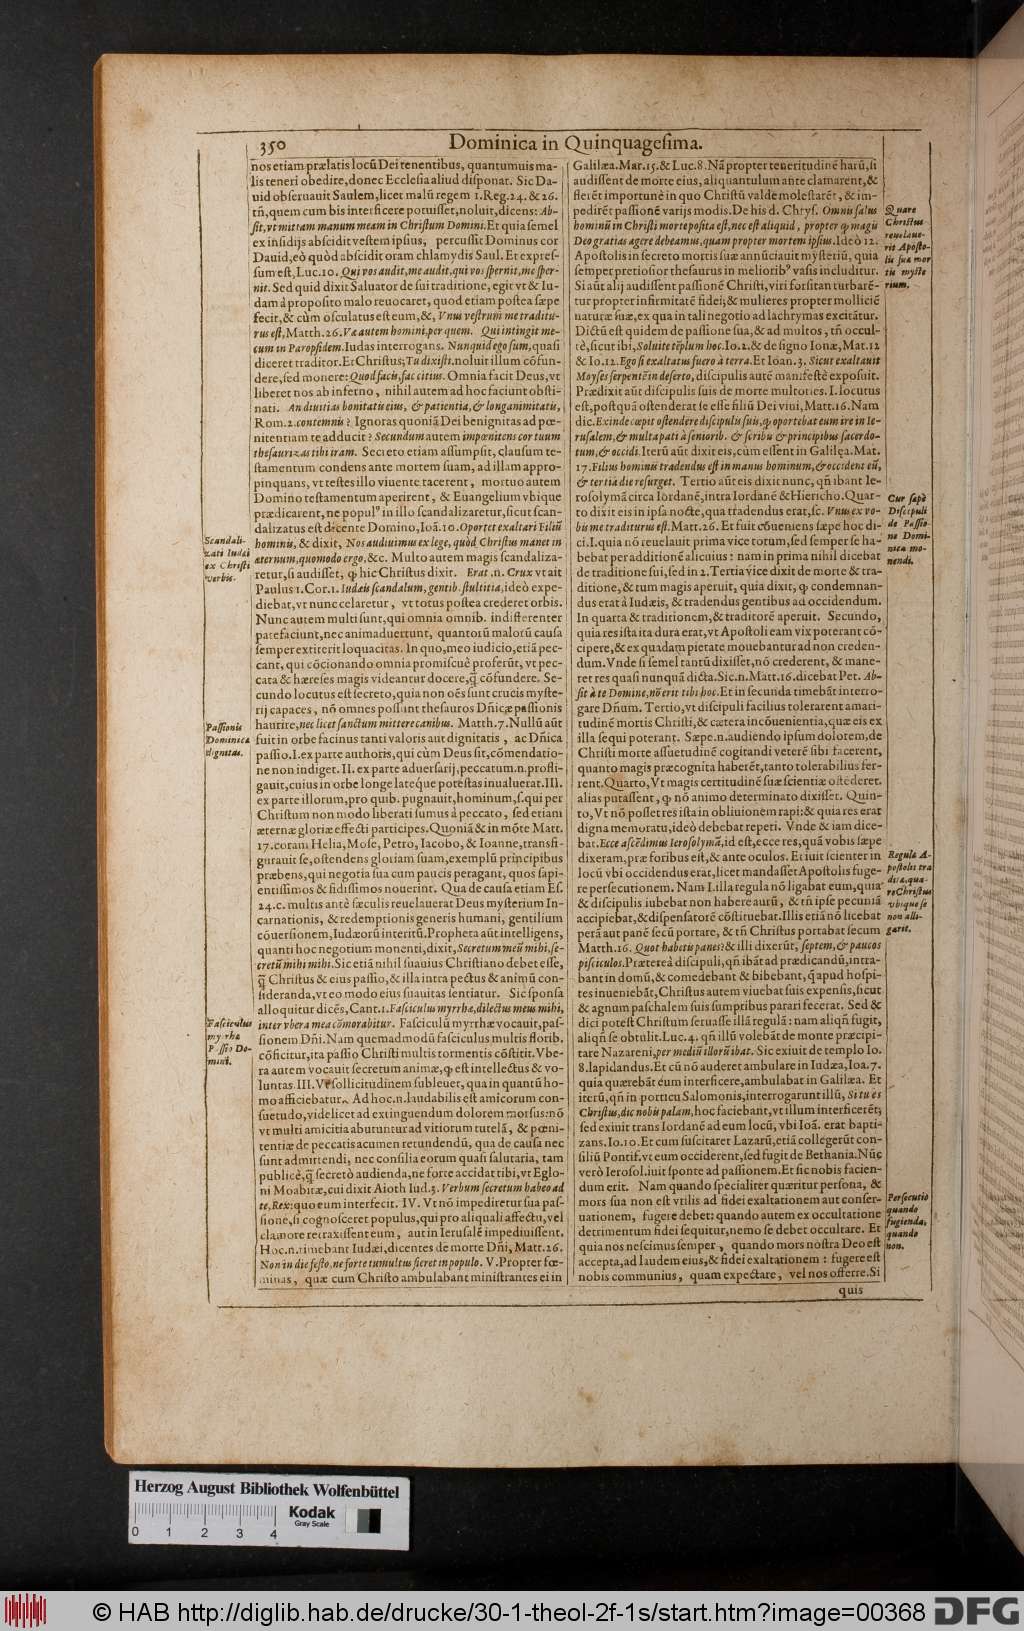 350
Dominica in Quinquagesima.
nos etiam prælatis locū Dei tenentibus, quantumuis ma-
lis teneri obedite, donec Ecclesia aliud disponat. Sic Da-
uid obseruauit Saulem, licet malū regem 1. Reg. 24. & 26.
tñ, quem cum bis interficere potuisset, noluit, dicens: Ab-
sit, vt mittam manum meam in Christum Domini. Et quia semel
ex insidijs abscidit vestem ipsius, percussit Dominus cor
Dauid, eò quòd abscidit oram chlamydis Saul. Et expres-
sum est, Luc. 10. Qui vos audit, me audit, qui vos spernit, me sper-
nit. Sed quid dixit Saluator de sui traditione, egit vt & Iu-
dam à proposito malo reuocaret, quod etiam postea sæpe
fecit, & cùm osculatus est eum, &, Vnus vestrum me traditu-
rus est, Matth. 26. Væ autem homini, per quem. Qui intingit me-
cum in Paropside. Iudas interrogans. Nunquid ego sum, quasi
diceret traditor. Et Christus; Tu dixisti. noluit illum cōfun-
dere, sed monere: Quod facis, fac citius. Omnia facit Deus, vt
liberet nos ab inferno, nihil autem ad hoc faciunt obsti-
nati. An diuitias bonitatis eius, & patientia, & longanimitatis,
Rom. 2. contemnis? Ignoras quoniā Dei benignitas ad pœ-
nitentiam te adducit? Secundum autem impœnitens cor tuum
thesaurizas tibi iram. Secreto etiam assumpsit, clausum te-
stamentum condens ante mortem suam, ad illam appro-
pinquans, vt testes illo viuente tacerent, mortuo autem
Domino testamentum aperirent, & Euangelium vbique
prædicarent, ne popul⁹ in illo scandalizaretur, sicut scan-
dalizatus est dicente Domino, Ioā. 10. Oportet exaltari Filiū
hominis, & dixit, Nos audiuimus ex lege, quòd Christus manet in
æternum, quomodo ergo, &c. Multo autem magis scandaliza-
retur, si audisset, ꝙ hic Christus dixit. Erat .n. Crux vt ait
Paulus 1. Cor. 1. Iudæis scandalum, gentib. stultitia, ideò expe-
diebat, vt nunc celaretur, vt totus postea crederet orbis.
Nunc autem multi sunt, qui omnia omnib. indifferenter
patefaciunt, nec animaduertunt, quantorū malorū causa
semper extiterit loquacitas. In quo, meo iudicio, etiā pec-
cant, qui cōcionando omnia promiscuè proferūt, vt pec-
cata & hæreses magis videantur docere, q̃ cōfundere. Se-
cundo locutus est secreto, quia non oēs sunt crucis myste-
rij capaces, nō omnes possunt thesauros Dñicæ passionis
haurire, nec licet sanctum mittere canibus. Matth. 7. Nullū aūt
fuit in orbe facinus tanti valoris aut dignitatis, ac Dñica
passio. I. ex parte authoris, qui cùm Deus sit, cōmendatio-
ne non indiget. II. ex parte aduersarij, peccatum .n. profli-
gauit, cuius in orbe longe lateque potestas inualuerat. III.
ex parte illorum, pro quib. pugnauit, hominum, s. qui per
Christum non modo liberati sumus à peccato, sed etiam
æternæ gloriæ effecti participes. Quoniā & in mōte Matt.
17. coram Helia, Mose, Petro, Iacobo, & Ioanne, transfi-
gurauit se, ostendens gloriam suam, exemplū principibus
præbens, qui negotia sua cum paucis peragant, quos sapi-
entissimos & fidissimos nouerint. Qua de causa etiam Es.
24. c. multis antè sæculis reuelauerat Deus mysterium In-
carnationis, & redemptionis generis humani, gentilium
cōuersionem, Iudæorū interitū. Propheta aūt intelligens,
quanti hoc negotium monenti, dixit, Secretum meū mihi, se-
cretū mihi mihi. Sic etiā nihil suauius Christiano debet esse,
q̃ Christus & eius passio, & illa intra pectus & animū con-
sideranda, vt eo modo eius suauitas sentiatur. Sic sponsa
alloquitur dicēs, Cant. 1. Fasciculus myrrhæ, dilectus meus mihi,
inter vbera mea cōmorabitur. Fasciculū myrrhæ vocauit, pas-
sionem Dñi. Nam quemadmodū fasciculus multis florib.
cōficitur, ita passio Christi multis tormentis cōstitit. Vbe-
ra autem vocauit secretum animæ, ꝙ est intellectus & vo-
luntas. III. Vt sollicitudinem subleuet, qua in quantū ho-
mo afficiebatur. Ad hoc .n. laudabilis est amicorum con-
suetudo, videlicet ad extinguendum dolorem morsus: nō
vt multi amicitia abutuntur ad vitiorum tutelā, & pœni-
tentiæ de peccatis acumen retundendū, qua de causa nec
sunt admittendi, nec consilia eorum quasi salutaria, tam
publicè, q̃ secretò audienda, ne forte accidat tibi, vt Eglo-
ni Moabitæ, cui dixit Aioth Iud. 3. Verbum secretum habeo ad
te, Rex: quo eum interfecit. IV. Vt nō impediretur sua pas-
sione, si cognosceret populus, qui pro aliquali affectu, vel
clamore retraxissent eum, aut in Ierusalē impediuissent.
Hoc .n. timebant Iudæi, dicentes de morte Dñi, Matt. 26.
Non in die festo, ne forte tumultus fieret in populo. V. Propter fœ-
minas, quæ cum Christo ambulabant ministrantes ei in
Scandali-
zati Iudæi
ex Christi
verbis.
Passionis
Dominicæ
dignitas.
Fasciculus
myrrhæ
Passio Do-
mini.
Galilæa. Mar. 15. & Luc. 8. Nā propter teneritudinē harū, si
audissent de morte eius, aliquantulum ante clamarent, &
flerēt importunè in quo Christū valdè molestarēt, & im-
pedirēt passionē varijs modis. De his d. Chrys. Omnis salus
hominū in Christi morte posita est, nec est aliquid, propter ꝙ magis
Deo gratias agere debeamus, quam propter mortem ipsius. Ideò 12.
Apostolis in secreto mortis suæ annūciauit mysteriū, quia
semper pretiosior thesaurus in meliorib⁹ vasis includitur.
Si aūt alij audissent passionē Christi, viri forsitan turbarē-
tur propter infirmitatē fidei; & mulieres propter molliciē
naturæ suæ, ex qua in tali negotio ad lachrymas excitātur.
Dictū est quidem de passione sua, & ad multos, tñ occul-
tè, sicut ibi, Soluite tēplum hoc. Io. 2. & de signo Ionæ, Mat. 12
& Io. 12. Ego si exaltatus fuero à terra. Et Ioan. 3. Sicut exaltauit
Moyses serpentē in deserto, discipulis autē manifestè exposuit.
Prædixit aūt discipulis suis de morte multoties. I. locutus
est, postquā ostenderat se esse filiū Dei viui, Matt. 16. Nam
dic. Exinde cœpit ostendere discipulis suis, ꝙ oportebat eum ire in Ie-
rusalem, & multa pati à seniorib. & scribis & principibus sacerdo-
tum, & occidi. Iterū aūt dixit eis, cùm essent in Galilęa. Mat.
17. Filius hominis tradendus est in manus hominum, & occident eū,
& tertia die resurget. Tertio aūt eis dixit nunc, qñ ibant Ie-
rosolymā circa Iordanē, intra Iordanē & Hiericho. Quar-
to dixit eis in ipsa nocte, qua tradendus erat, sc. Vnus ex vo-
bis me traditurus est. Matt. 26. Et fuit cōueniens sæpe hoc di-
ci. I. quia nō reuelauit prima vice totum, sed semper se ha-
bebat per additionē alicuius: nam in prima nihil dicebat
de traditione sui, sed in 2. Tertia vice dixit de morte & tra-
ditione, & tum magis aperuit, quia dixit, ꝙ condemnan-
dus erat à Iudæis, & tradendus gentibus ad occidendum.
In quarta & traditionem, & traditorē aperuit. Secundo,
quia res ista ita dura erat, vt Apostoli eam vix poterant cō-
cipere, & ex quadam pietate mouebantur ad non creden-
dum. Vnde si semel tantū dixisset, nō crederent, & mane-
ret res quasi nunquā dicta. Sic .n. Matt. 16. dicebat Pet. Ab-
sit à te Domine, nō erit tibi hoc. Et in secunda timebāt interro-
gare Dñum. Tertio, vt discipuli facilius tolerarent amari-
tudinē mortis Christi, & cætera incōuenientia, quæ eis ex
illa sequi poterant. Sæpe .n. audiendo ipsum dolorem, de
Christi morte assuetudinē cogitandi veterē sibi facerent,
quanto magis præcognita haberēt, tanto tolerabilius fer-
rent. Quarto, Vt magis certitudinē suæ scientiæ ostēderet.
alias putassent, ꝙ nō animo determinato dixisset. Quin-
to, Vt nō posset res ista in obliuionem rapi: & quia res erat
digna memoratu, ideò debebat repeti. Vnde & iam dice-
bat. Ecce ascēdimus Ierosolymā, id est, ecce res, quā vobis sæpe
dixeram, præ foribus est, & ante oculos. Et iuit scienter in
locū vbi occidendus erat, licet mandasset Apostolis fuge-
re persecutionem. Nam I. illa regula nō ligabat eum, quia
& discipulis iubebat non habere aurū, & tñ ipse pecuniā
accipiebat, & dispensatorē cōstituebat. Illis etiā nō licebat
perā aut panē secū portare, & tñ Christus portabat secum
Matth. 16. Quot habetis panes? & illi dixerūt, septem, & paucos
pisciculos. Prætereà discipuli, qñ ibāt ad prædicandū, intra-
bant in domū, & comedebant & bibebant, q̃ apud hospi-
tes inueniebāt, Christus autem viuebat suis expensis, sicut
& agnum paschalem suis sumptibus parari fecerat. Sed &
dici potest Christum seruasse illā regulā: nam aliqñ fugit,
aliqñ se obtulit. Luc. 4. qñ illū volebāt de monte præcipi-
tare Nazareni, per mediū illorū ibat. Sic exiuit de templo Io.
8. lapidandus. Et cū nō auderet ambulare in Iudæa, Ioa. 7.
quia quærebāt eum interficere, ambulabat in Galilæa. Et
iterū, qñ in porticu Salomonis, interrogarunt illū, Si tu es
Christus, dic nobis palam, hoc faciebant, vt illum interficerēt;
sed exiuit trans Iordanē ad eum locū, vbi Ioā. erat bapti-
zans. Io. 10. Et cum suscitaret Lazarū, etiā collegerūt con-
siliū Pontif. vt eum occiderent, sed fugit de Bethania. Nūc
verò Ierosol. iuit sponte ad passionem. Et sic nobis facien-
dum erit. Nam quando specialiter quæritur persona, &
mors sua non est vtilis ad fidei exaltationem aut conser-
uationem, fugere debet: quando autem ex occultatione
detrimentum fidei sequitur, nemo se debet occultare. Et
quia nos nescimus semper, quando mors nostra Deo est
accepta, ad laudem eius, & fidei exaltationem: fugere est
nobis communius, quam expectare, vel nos offerre. Si
quis
Quare
Christus
reuelaue-
rit Aposto-
lis suæ mor
tis myste
rium.
Cur sæpè
Discipuli
de Passio-
ne Domi-
nica mo-
nendi.
Regula A-
postolis tra
dita, qua-
re Christus
vbique se
non alli-
garit.
Persecutio
quando
fugienda,
quando
non.
Herzog August Bibliothek Wolfenbüttel
0 1 2 3 4
Kodak
Gray Scale
© HAB http://diglib.hab.de/drucke/30-1-theol-2f-1s/start.htm?image=00368
DFG